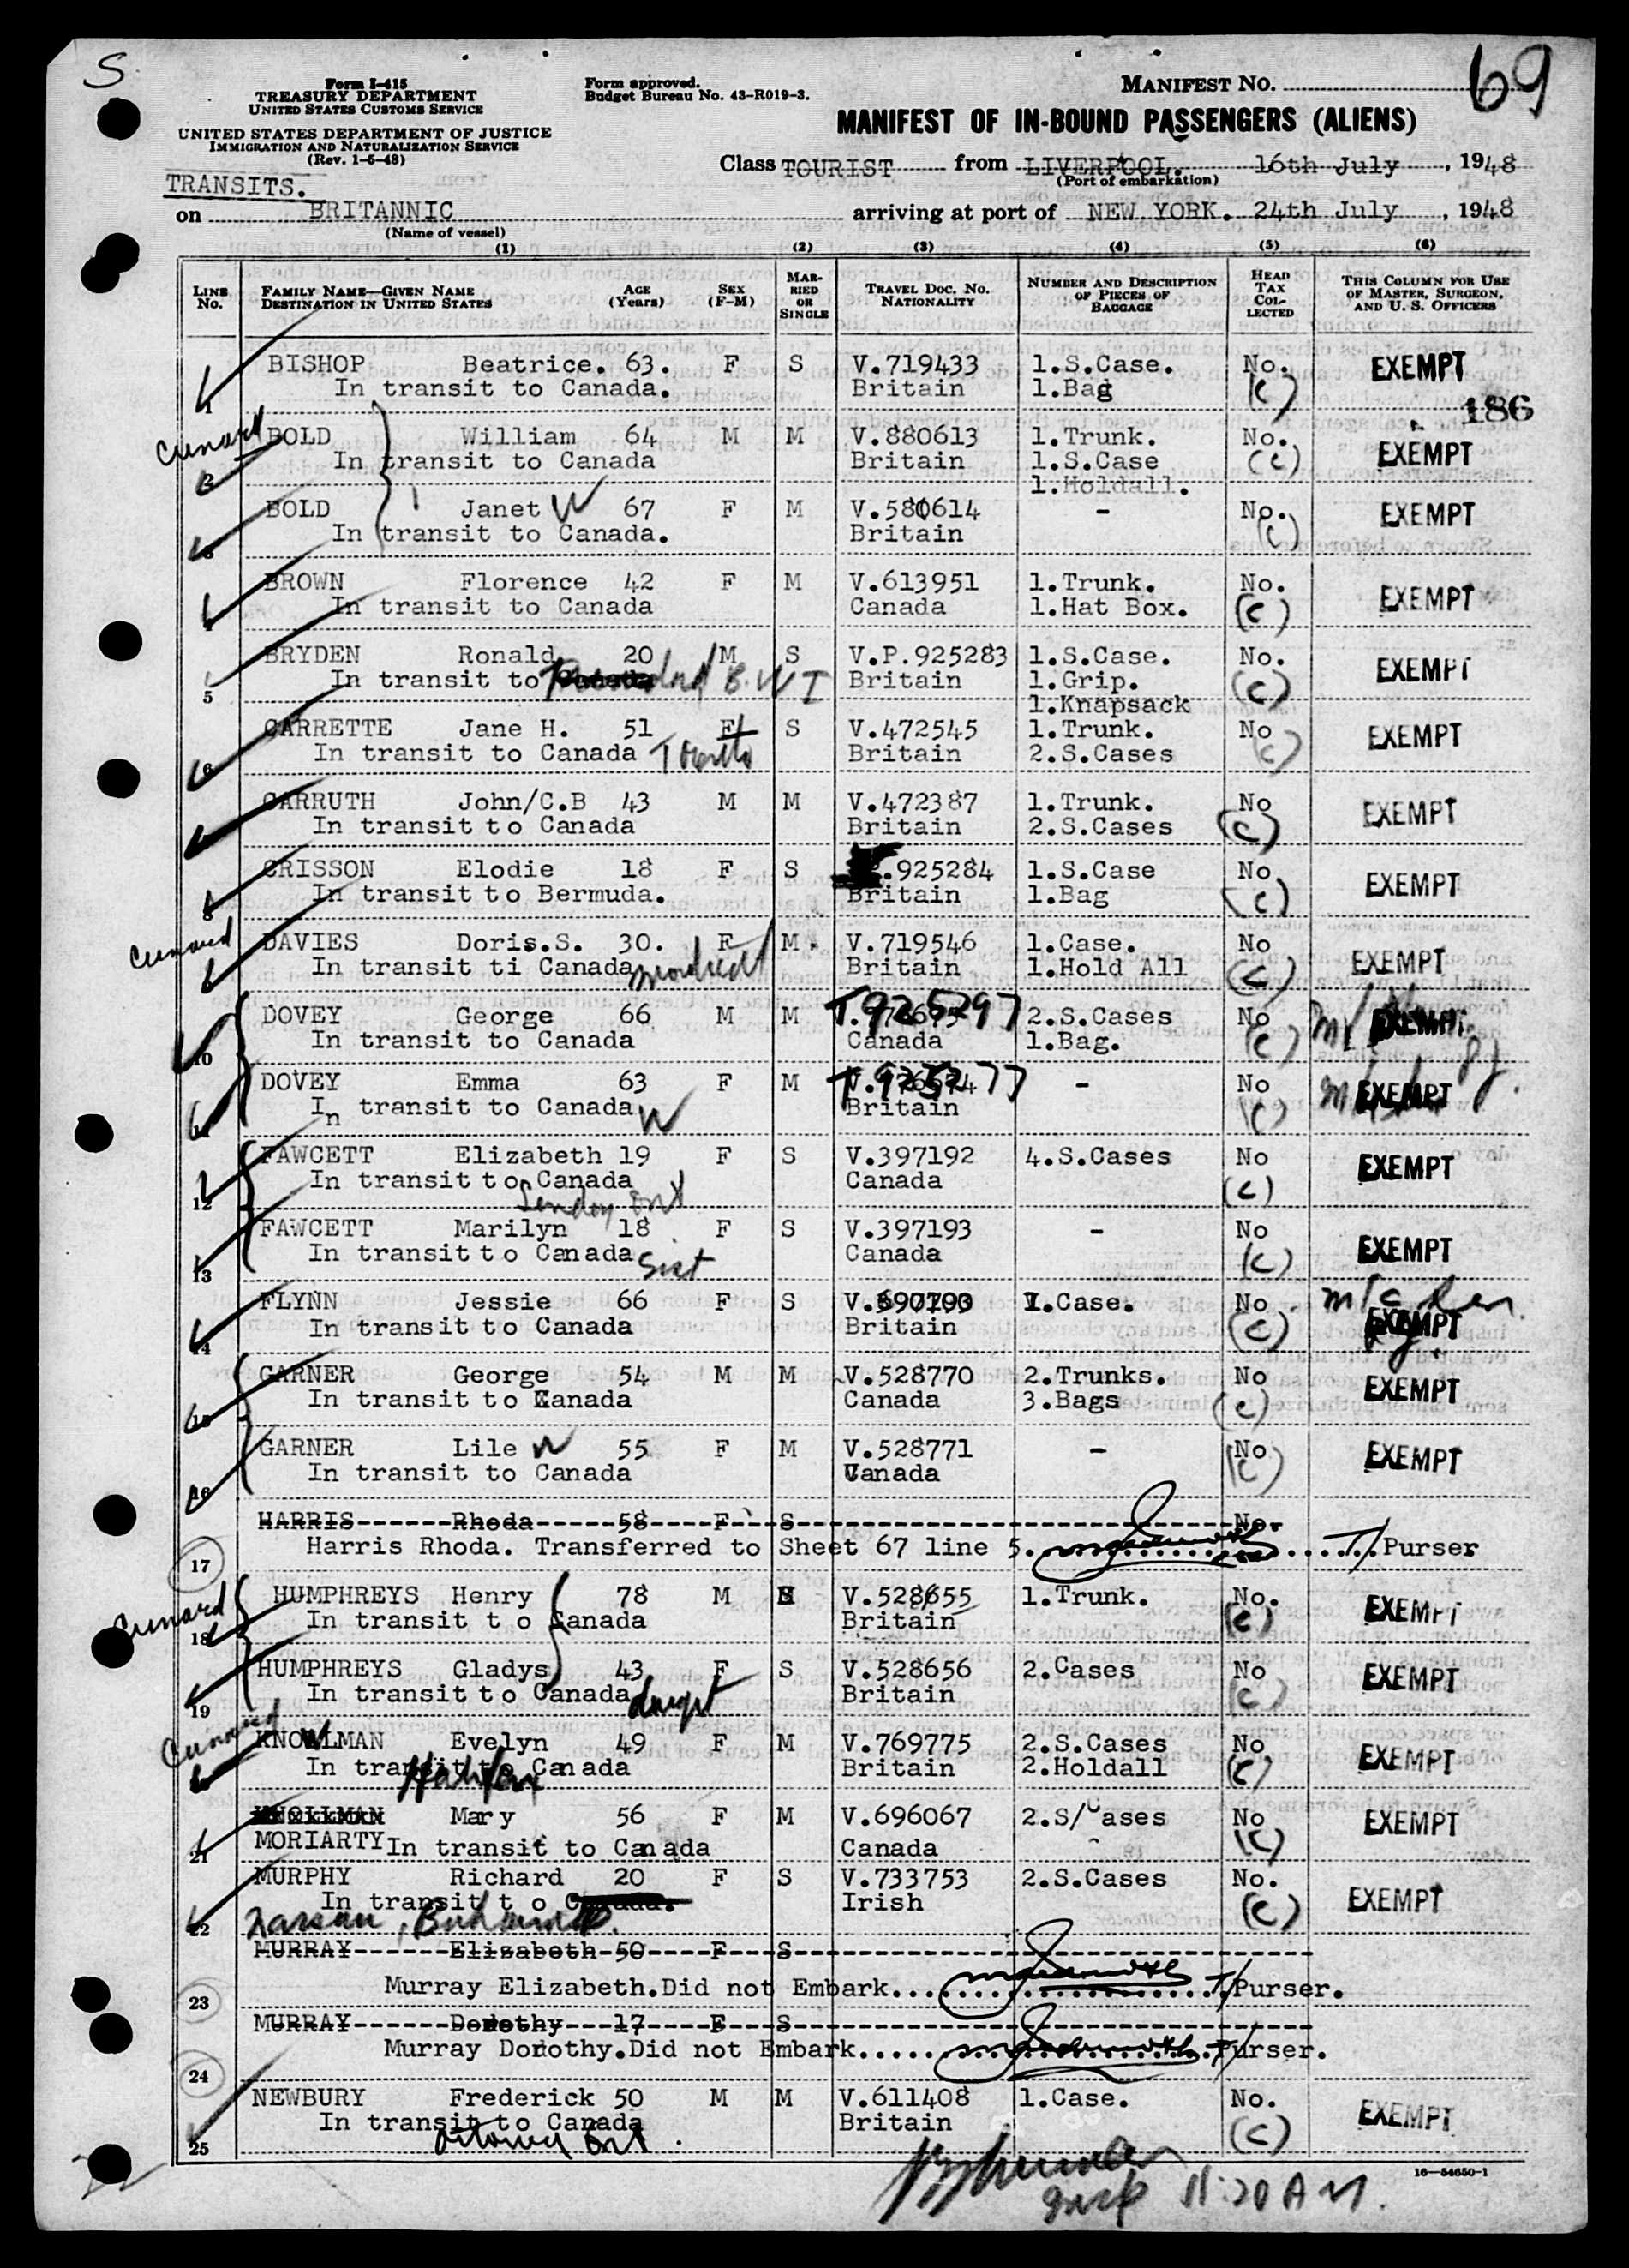 S
69
Form I-415
TREASURY DEPARTMENT
UNITED STATES CUSTOMS SERVICE
UNITED STATES DEPARTMENT OF JUSTICE
IMMIGRATION AND NATURALIZATION SERVICE
(Rev. 1-6-48)
Form approved.
Budget Bureau No. 43-R019-3.
MANIFEST NO.
MANIFEST OF IN-BOUND PASSENGERS (ALIENS)
Class TOURIST from LIVERPOOL. 16th July, 1948
(Port of embarkation)
TRANSITS.
on BRITANNIC arriving at port of NEW YORK. 24th July, 1948
(Name of vessel)
(1) (2) (3) (4) (5) (6)
LINE No. FAMILY NAME—GIVEN NAME DESTINATION IN UNITED STATES AGE (Years) SEX (F-M) MARRIED OR SINGLE TRAVEL DOC. NO. NATIONALITY NUMBER AND DESCRIPTION OF PIECES OF BAGGAGE HEAD TAX COLLECTED THIS COLUMN FOR USE OF MASTER, SURGEON, AND U. S. OFFICERS
1 BISHOP Beatrice. 63. F S V.719433 1.S.Case. No. EXEMPT
In transit to Canada. Britain 1.Bag (c)
186
Cunard
2 BOLD William 64 M M V.880613 1.Trunk. No. EXEMPT
In transit to Canada Britain 1.S.Case (c)
1.Holdall.
3 BOLD Janet W 67 F M V.580614 - No. EXEMPT
In transit to Canada. Britain (c)
4 BROWN Florence 42 F M V.613951 1.Trunk. No. EXEMPT
In transit to Canada Canada 1.Hat Box. (c)
5 BRYDEN Ronald 20 M S V.P.925283 1.S.Case. No. EXEMPT
In transit to Trinidad B.W I Britain 1.Grip. (c)
1.Knapsack
6 CARRETTE Jane H. 51 F S V.472545 1.Trunk. No EXEMPT
In transit to Canada Toronto Britain 2.S.Cases (c)
CARRUTH John/C.B 43 M M V.472387 1.Trunk. No EXEMPT
In transit to Canada Britain 2.S.Cases (c)
8 CRISSON Elodie 18 F S .925284 1.S.Case No. EXEMPT
In transit to Bermuda. Britain 1.Bag (c)
Cunard
DAVIES Doris.S. 30. F M. V.719546 1.Case. No EXEMPT
In transit ti Canada Montreal Britain 1.Hold All (c)
10 DOVEY George 66 M M T.925297 2.S.Cases No EXEMPT
In transit to Canada Canada 1.Bag. (c)
11 DOVEY Emma 63 F M T.925277 - No EXEMPT
In transit to Canada W Britain (c)
12 FAWCETT Elizabeth 19 F S V.397192 4.S.Cases No EXEMPT
In transit to Canada Canada (c)
London Ont
13 FAWCETT Marilyn 18 F S V.397193 - No EXEMPT
In transit to Canada Sist Canada (c)
14 FLYNN Jessie 66 F S V.690790 1.Case. No EXEMPT
In transit to Canada Britain (c)
15 GARNER George 54 M M V.528770 2.Trunks. No EXEMPT
In transit to Canada Canada 3.Bags (c)
16 GARNER Lile W 55 F M V.528771 - No EXEMPT
In transit to Canada Canada (c)
17 HARRIS------Rhoda-----58----F---S No.
Harris Rhoda. Transferred to Sheet 67 line 5. T/Purser
Cunard
18 HUMPHREYS Henry 78 M V.528655 1.Trunk. No. EXEMPT
In transit t o Canada Britain (c)
19 HUMPHREYS Gladys 43 F S V.528656 2.Cases No EXEMPT
In transit to Canada daugt Britain (c)
Cunard
KNOWLMAN Evelyn 49 F M V.769775 2.S.Cases No EXEMPT
In transit to Canada Britain 2.Holdall (c)
Halifax
KNOLLMAN Mary 56 F M V.696067 2.S/Cases No EXEMPT
21 MORIARTY In transit to Canada Canada (c)
22 MURPHY Richard 20 F S V.733753 2.S.Cases No. EXEMPT
In transit t o Canada. Irish (c)
Nassau, Bahamas.
MURRAY------Elizabeth-50----F---S
23 Murray Elizabeth.Did not Embark... T/Purser.
MURRAY------Dorothy---17----F---S
24 Murray Dorothy.Did not Embark..... T/Purser.
25 NEWBURY Frederick 50 M M V.611408 1.Case. No. EXEMPT
In transit to Canada Britain (c)
Ottawa Ont.
16—54650-1
Insp 11:20 A M.